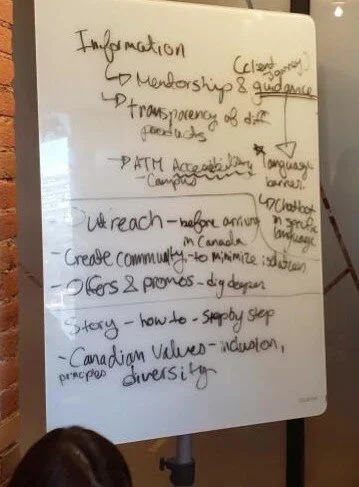 Information
(client journey)
↳ Mentorship & guidance
↳ Transparency of diff
products
↳ ATM Accessibility
- Campus
* Language
barrier
↳ Chatbot
in specific
language
Outreach - before arriving
in Canada
- Create community - to minimize isolation
- Offers & promos - dig deeper
Story - how to - step by step
- Canadian Values - inclusion,
principles diversity